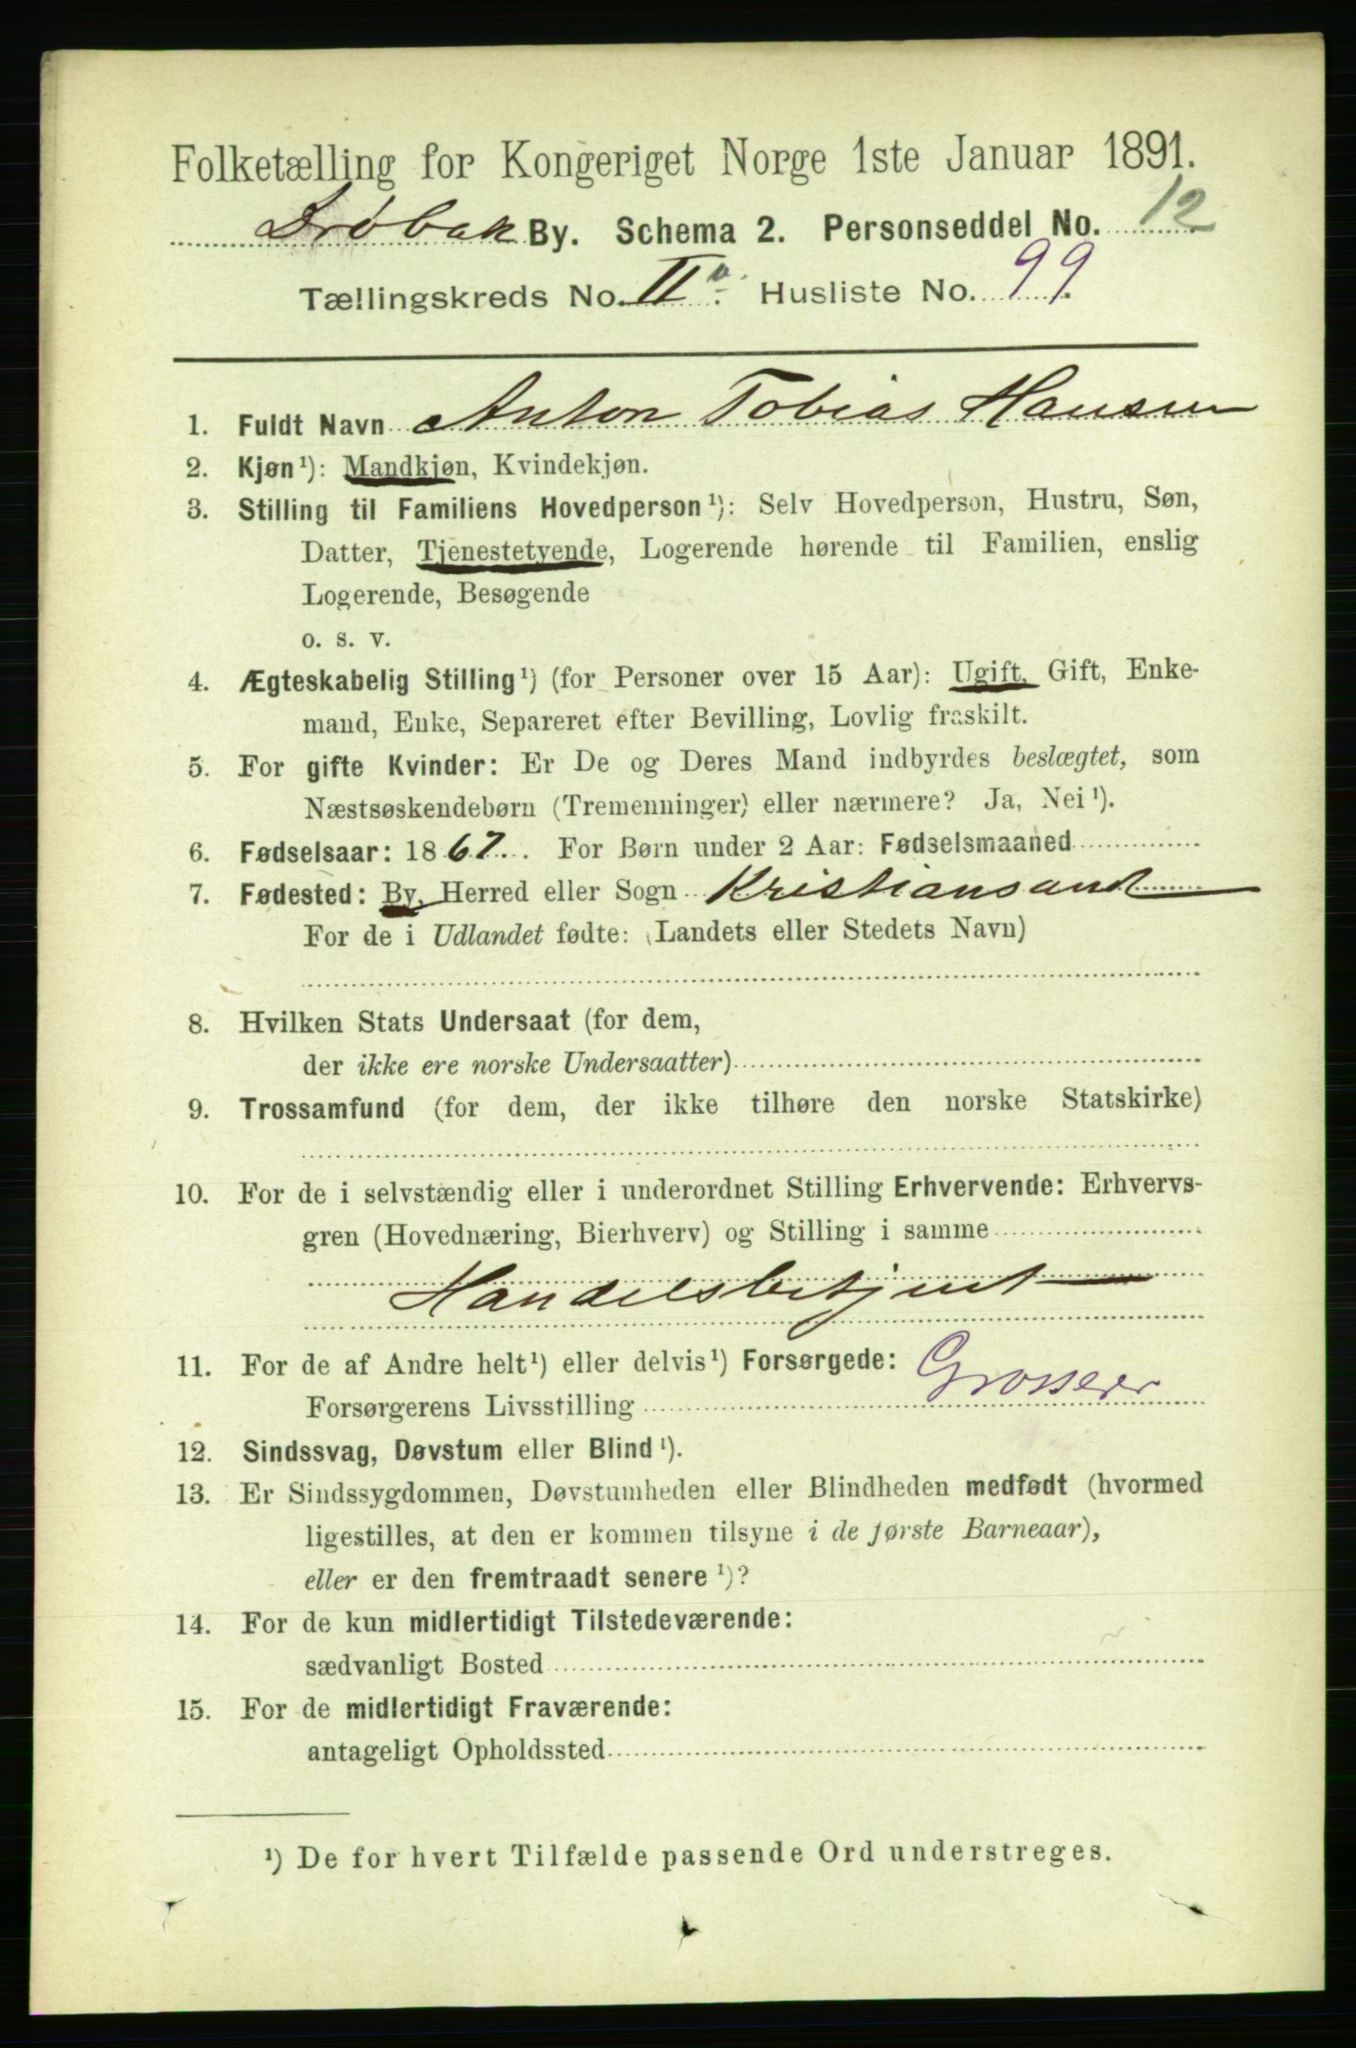 Folketælling for Kongeriget Norge 1ste Januar 1891.
Drøbak By. Schema 2. Personseddel No. 12
Tællingskreds No. II a. Husliste No. 99.
1. Fuldt Navn Anton Tobias Hansen
2. Kjøn ¹): Mandkjøn, Kvindekjøn.
3. Stilling til Familiens Hovedperson ¹): Selv Hovedperson, Hustru, Søn,
Datter, Tjenestetyende, Logerende hørende til Familien, enslig
Logerende, Besøgende
o. s. v.
4. Ægteskabelig Stilling ¹) (for Personer over 15 Aar): Ugift, Gift, Enke-
mand, Enke, Separeret efter Bevilling, Lovlig fraskilt.
5. For gifte Kvinder: Er De og Deres Mand indbyrdes beslægtet, som
Næstsøskendebørn (Tremenninger) eller nærmere? Ja, Nei ¹).
6. Fødselsaar: 1867. For Børn under 2 Aar: Fødselsmaaned
7. Fødested: By, Herred eller Sogn Kristiansand
For de i Udlandet fødte: (Landets eller Stedets Navn)
8. Hvilken Stats Undersaat (for dem,
der ikke ere norske Undersaatter)
9. Trossamfund (for dem, der ikke tilhøre den norske Statskirke)
10. For de i selvstændig eller i underordnet Stilling Erhvervende: Erhvervs-
gren (Hovednæring, Bierhverv) og Stilling i samme
Handelsbetjent
11. For de af Andre helt ¹) eller delvis ¹) Forsørgede:
Forsørgerens Livsstilling Grosserer
12. Sindssvag, Døvstum eller Blind ¹).
13. Er Sindssygdommen, Døvstumheden eller Blindheden medfødt (hvormed
ligestilles, at den er kommen tilsyne i de første Barneaar),
eller er den fremtraadt senere ¹)?
14. For de kun midlertidigt Tilstedeværende:
sædvanligt Bosted
15. For de midlertidigt Fraværende:
antageligt Opholdssted
¹) De for hvert Tilfælde passende Ord understreges.